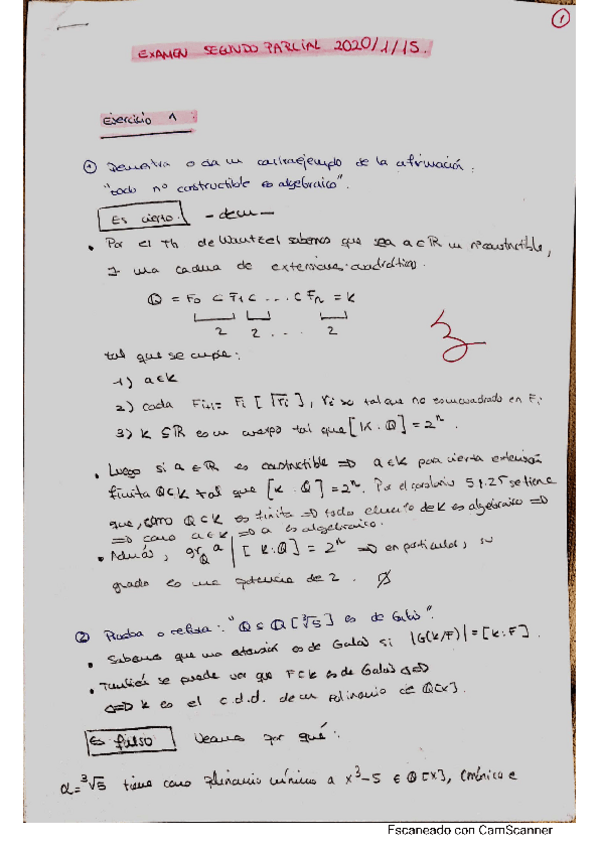 1
EXAMEN SEGUNDO PARCIAL 2020/1/15.
Ejercicio 1:
① Demuestra o da un contraejemplo de la afirmación:
"todo nº constructible es algebraico".
Es cierto. -dem-
• Por el Th de Wantzel sabemos que sea a∈ℝ un nº constructible,
∃ una cadena de extensiones cuadráticas.
ℚ = F₀ ⊂ F₁ ⊂ ... ⊂ Fₙ = K
2 2 ... 2
tal que se cumple:
1) a∈K
2) cada Fᵢ₊₁ = Fᵢ [√rᵢ], rᵢ tal que no es un cuadrado en Fᵢ
3) K ⊆ ℝ es un cuerpo tal que [K:ℚ] = 2ⁿ.
• Luego si a∈ℝ es constructible ⇒ a∈K para cierta extensión
finita ℚ⊂K tal que [K:ℚ] = 2ⁿ. Por el corolario 51.25 se tiene
que, como ℚ⊂K es finita ⇒ todo elemento de K es algebraico ⇒
⇒ como a∈K ⇒ a es algebraico.
• Además, gr_ℚ a | [K:ℚ] = 2ⁿ ⇒ en particular, su
grado es una potencia de 2.
② Prueba o refuta: "ℚ ⊆ ℚ[∛5] es de Galois".
• Sabemos que una extensión es de Galois si |G(K/F)| = [K:F].
• También se puede ver que F⊂K es de Galois ⇔
⇔ K es el c.d.d. de un polinomio de ℚ[x].
Es falso Veamos por qué:
α=∛5 tiene como polinomio mínimo a x³-5 ∈ ℚ[x], (mónico e
Escaneado con CamScanner